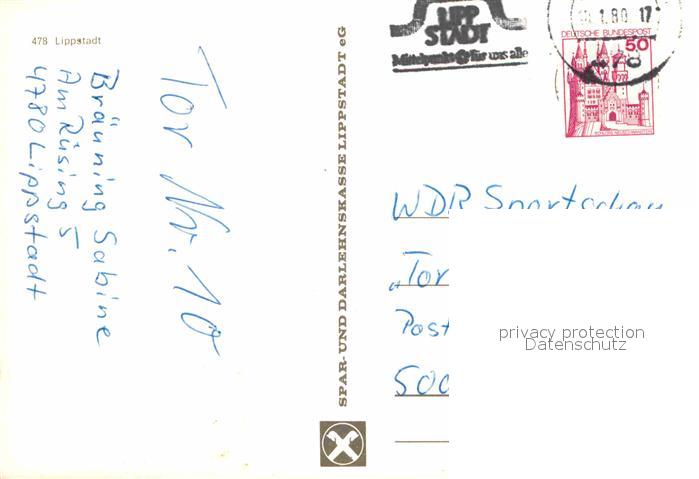 478 Lippstadt
Bräuning Sabine
Am Rüsing 5
4780 Lippstadt
Tor Nr. 10
SPAR- UND DARLEHNSKASSE LIPPSTADT eG
LIPP
STADT
Mittelpunkt für uns alle
1.80 17
478
DEUTSCHE BUNDESPOST
50
WDR Sportschau
„Tor
Post
500
privacy protection
Datenschutz